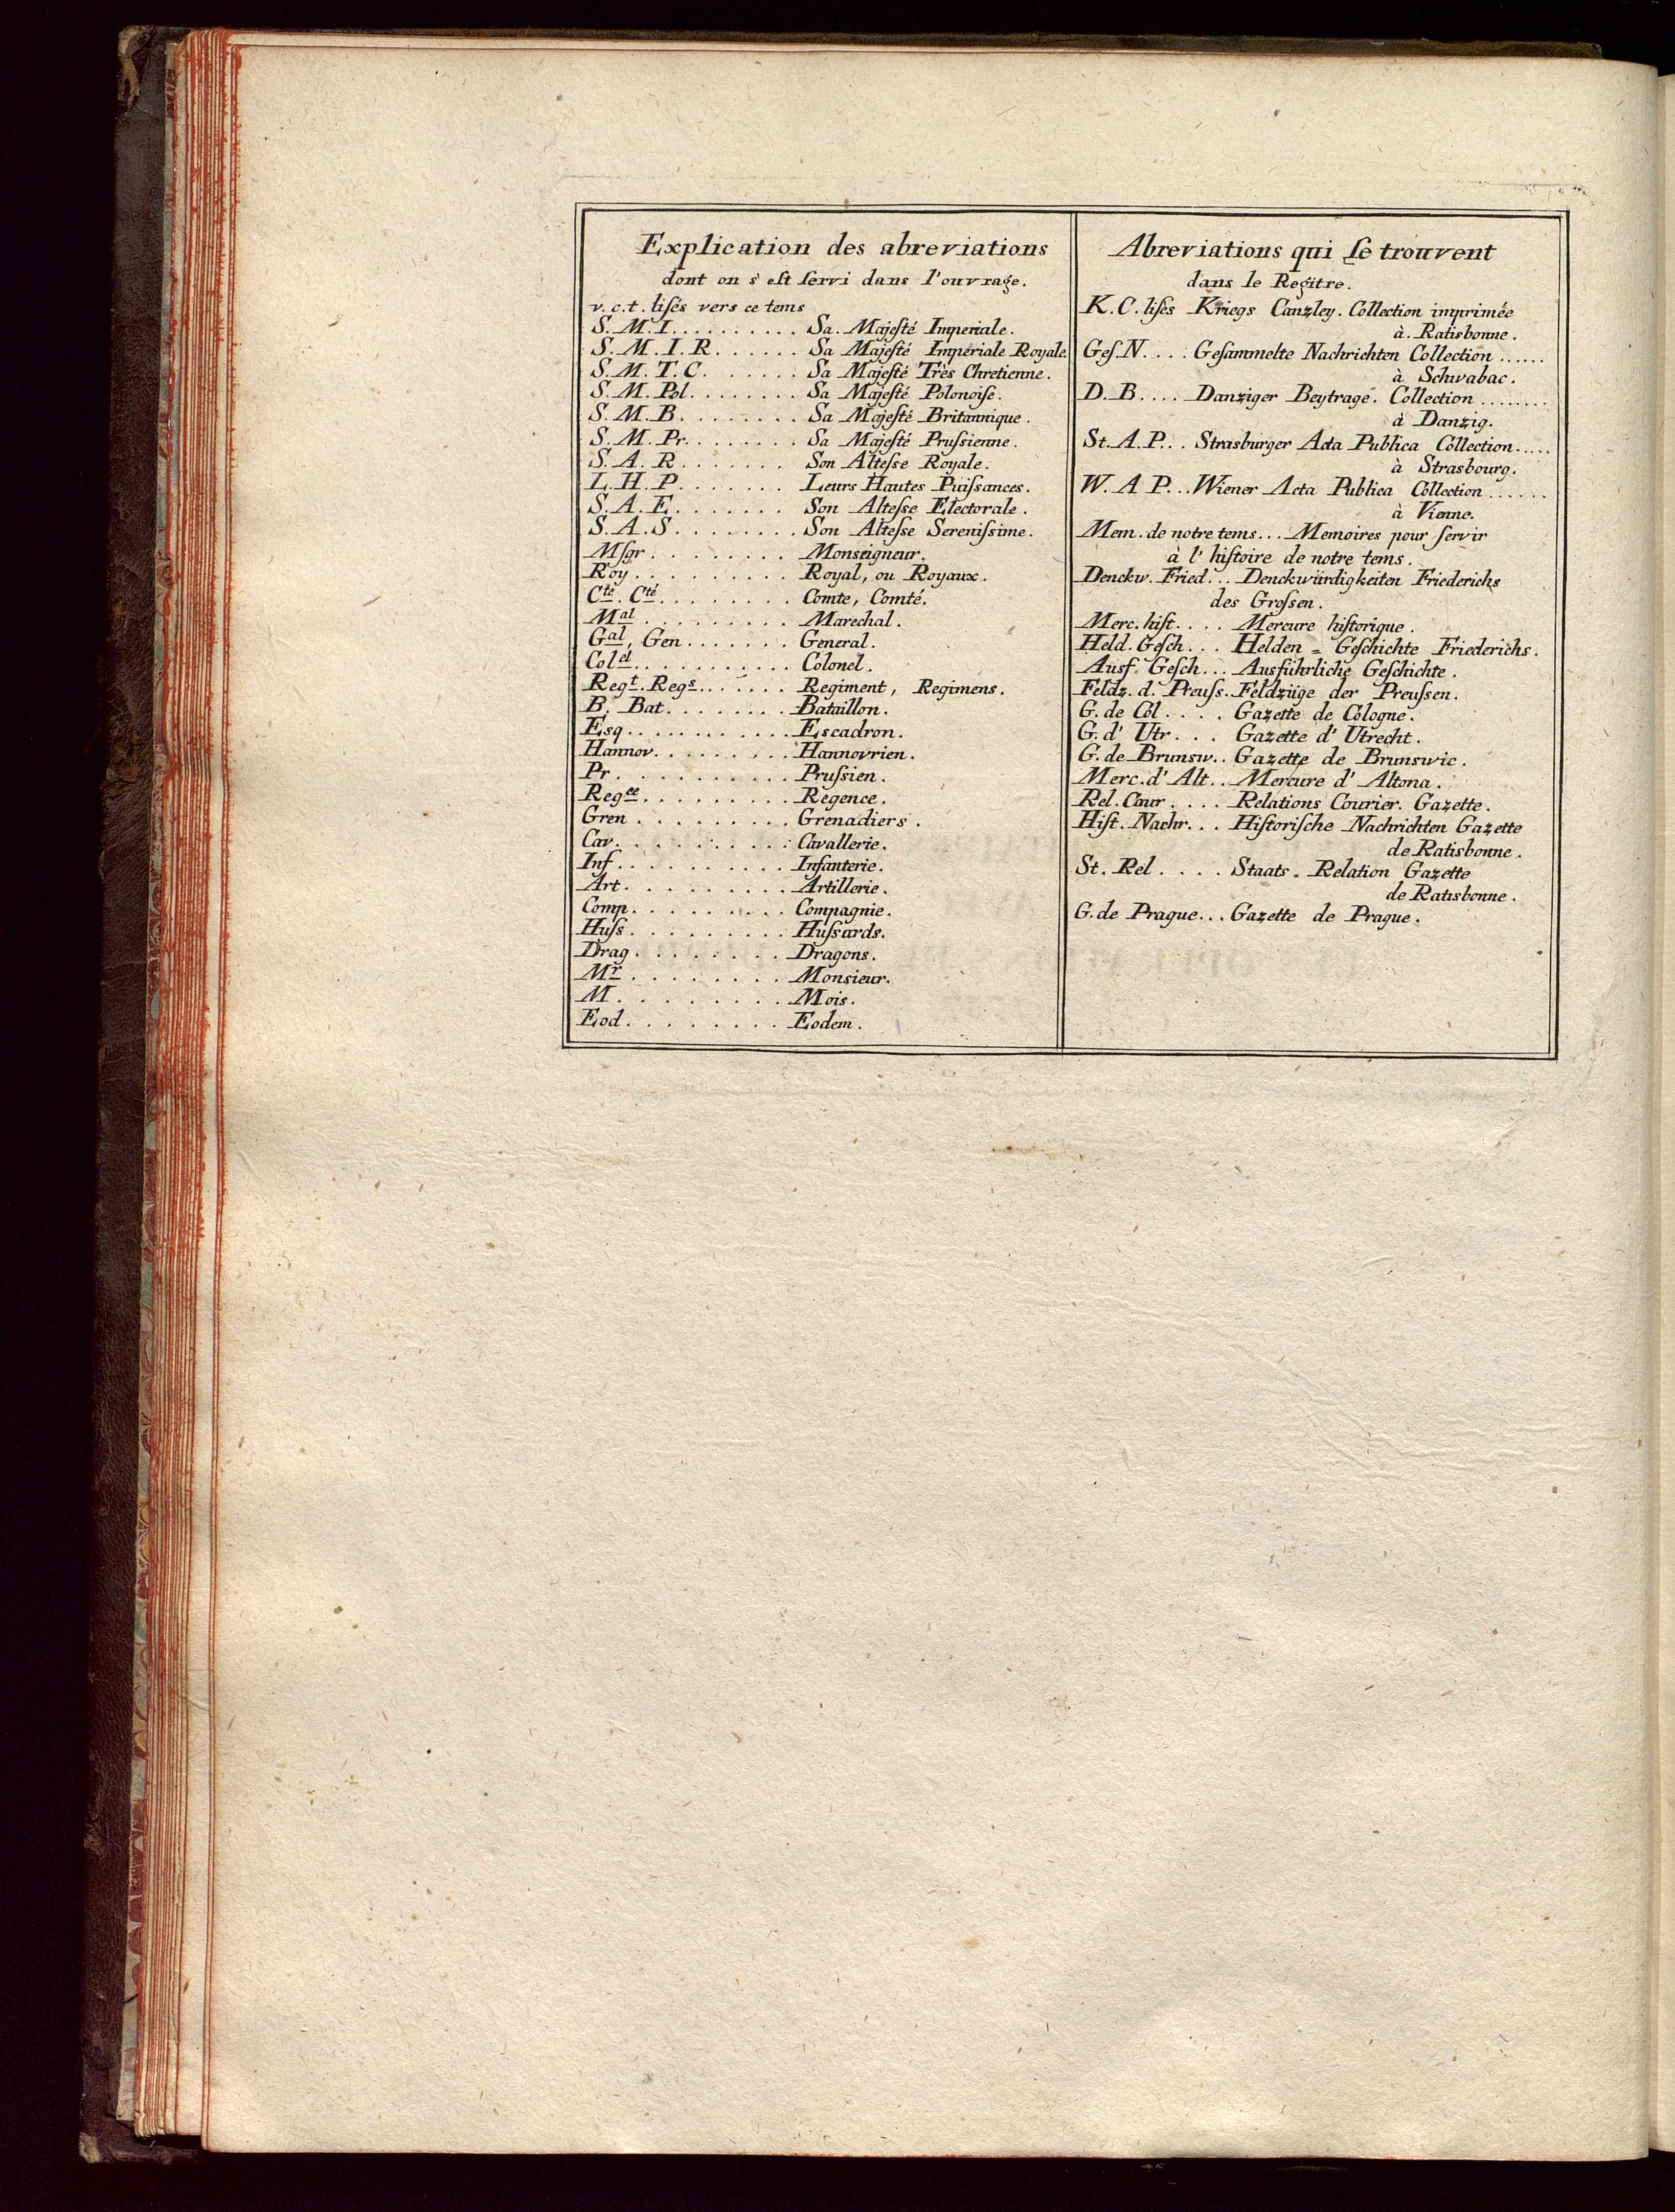 Explication des abreviations
dont on s'est servi dans l'ouvrage.
v.c.t. lisés vers ce tems
S.M.I.......... Sa. Majesté Imperiale.
S.M.I.R...... Sa Majesté Imperiale Royale
S.M.T.C...... Sa Majesté Très Chretienne.
S.M.Pol........ Sa Majesté Polonoise.
S.M.B........ Sa Majesté Britannique.
S.M.Pr........ Sa Majesté Prussienne.
S.A.R....... Son Altesse Royale.
L.H.P....... Leurs Hautes Puissances.
S.A.E....... Son Altesse Electorale.
S.A.S........ Son Altesse Serenissime.
Msgr........ Monseigneur.
Roy......... Royal, ou Royaux.
Cte. Cté........ Comte, Comté.
Mal......... Marechal.
Gal, Gen....... General.
Colel........... Colonel.
Regt. Regs....... Regiment, Regimens.
B. Bat........ Bataillon.
Esq........... Escadron.
Hannov......... Hannovrien.
Pr.......... Prussien.
Regce......... Regence.
Gren......... Grenadiers.
Cav.......... Cavallerie.
Inf.......... Infanterie.
Art.......... Artillerie.
Comp......... Compagnie.
Huss......... Hussards.
Drag........ Dragons.
Mr......... Monsieur.
M......... Mois.
Eod........ Eodem.
Abreviations qui se trouvent
dans le Regitre.
K.C. lisés Kriegs Canzley. Collection imprimée
à. Ratisbonne.
Ges.N.... Gesammelte Nachrichten Collection......
à Schwabac.
D.B.... Danziger Beytrage. Collection.........
à Danzig.
St.A.P... Strasburger Acta Publica Collection.....
à Strasbourg.
W.A P... Wiener Acta Publica Collection......
à Vienne.
Mem. de notre tems... Memoires pour servir
à l'histoire de notre tems.
Denckw. Fried... Denckwürdigkeiten Friederichs
des Grossen.
Merc. hist.... Mercure historique.
Held. Gesch... Helden = Geschichte Friederichs.
Ausf. Gesch... Ausführliche Geschichte.
Feldz. d. Preuss.. Feldzüge der Preussen.
G. de Col.... Gazette de Cologne.
G. d' Utr... Gazette d' Utrecht.
G. de Brunsw.. Gazette de Brunswic.
Merc. d' Alt.. Mercure d' Altona.
Rel. Cour.... Relations Courier. Gazette.
Hist. Nachr... Historische Nachrichten Gazette
de Ratisbonne.
St. Rel.... Staats = Relation Gazette
de Ratisbonne.
G. de Prague... Gazette de Prague.